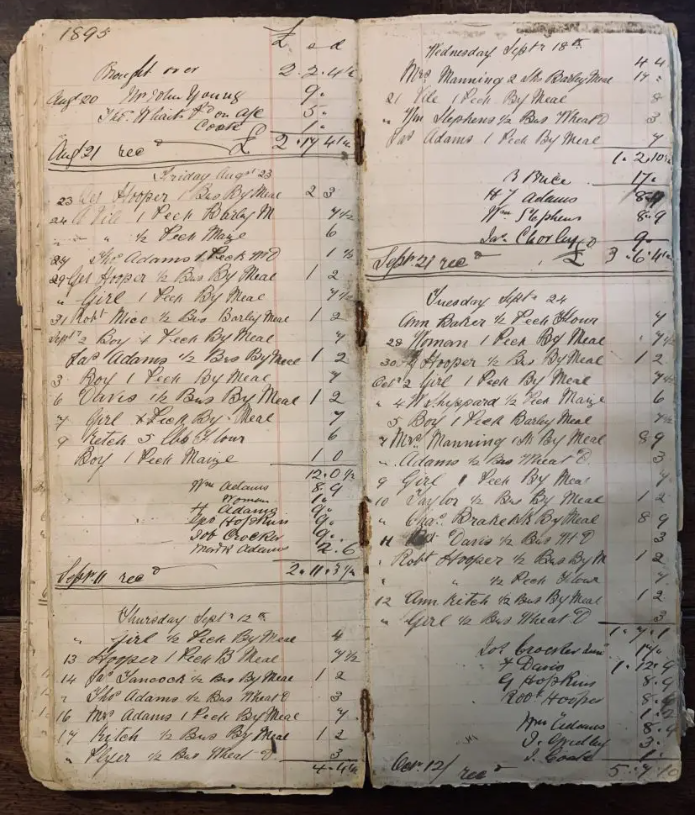 1895
£ s d
Brought over 2 2. 4½
Augt 20 Mr John Young 9.
Tho. Whait on a/c 5.
Cook 1.
Augt 21 recd £ 2. 17 4½
Friday Augt 23
23 Geo Hooper 1 Bus By Meal 2 3
24 Vile 1 Peck Barley M 7½
" " ½ Peck Maize 6
Thos Adams 1 Peck 1½
29 Geo Hooper ½ Bus By Meal 1 2
" Girl 1 Peck By Meal 7½
31 Robt ½ Bus Barley Meal 1 2
Sept 2 Boy 1 Peck By Meal 7
Jas Adams ½ Bus By Meal 1 2
3 Boy 1 Peck By Meal 7
6 Davis ½ Bus By Meal 1 2
7 Girl Peck By Meal 7
9 Kitch 5 lbs Flour 6
Boy 1 Peck Maize 1 0
12. 0½
Wm Adams 8. 9
Woman 1.
H Adams 9.
Geo Hopkins 9.
Job Crocker 9.
Mark Adams 2. 6
Sept 11 recd 2. 11. 3½
Thursday Sept 12th
" Girl ½ Peck By Meal 4
13 Hooper 1 Peck B Meal 7½
14 Jas ½ Bus By Meal 1 2
" Thos Adams ½ Bus Wheat D 3
16 Mrs Adams 1 Peck By Meal 7
17 Kitch ½ Bus By Meal 1 2
" ½ Bus Wheat D. 3
4. 4½
Wednesday Septr 18th 4 4
Mrs Manning 2 Barley Meal 17
21 Vile 1 Peck By Meal 8
" Wm Stephens ½ Bus Wheat D 3
Jas Adams 1 Peck By Meal 7
1. 2. 10½
B 17.
H J Adams
Wm Stephens 8. 9
Jas Chorley 9.
Septr 21 recd £ 3. 6. 4½
Tuesday Septr 24
Ann Baker ½ Peck Flour 7
28 Woman 1 Peck By Meal 7½
30 Hooper ½ Bus By Meal 1 2
Oct 2 Girl 1 Peck By Meal 7½
" 4 W Sheppard ½ Peck Maize 6
5 Boy 1 Peck Barley Meal 7½
7 Mrs Manning By Meal 8 9
" Adams ½ Bus Wheat D. 3
9 Girl 1 Peck By Meal 7
10 Taylor ½ Bus By Meal 1 2
" Chas. Brake By Meal 8 9
11 Davis ½ Bus Wt D 3
Robt Hooper ½ Bus By M 1 2
" " ½ Peck Flour 7
12 Ann Kitch ½ Bus By Meal 1 2
" Girl ½ Bus Wheat D 3
1. 7. 1
Job Crocker 17.
F Davis 1. 12. 9
G Hopkins 8. 9
Robt Hooper 8.
Wm Adams 8. 9
3.
J. Cook 1
Oct. 12/ recd 5. 7. 10